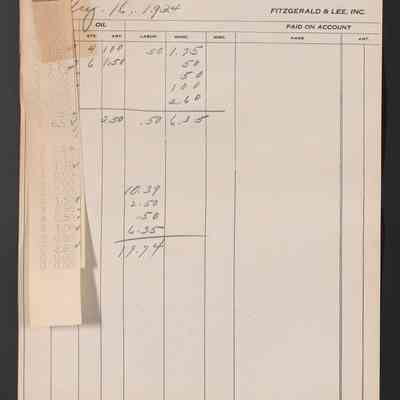 Aug. 16. 1924 FITZGERALD & LEE, INC.
OIL PAID ON ACCOUNT
QTS. AMT. LABOR MISC. MISC. NAME AMT.
4 1.00 .50 1.75
6 1.50 50
50
1 00
2.60
2.50 .50 6.35
10.39
2.50
.50
6.35
19.74